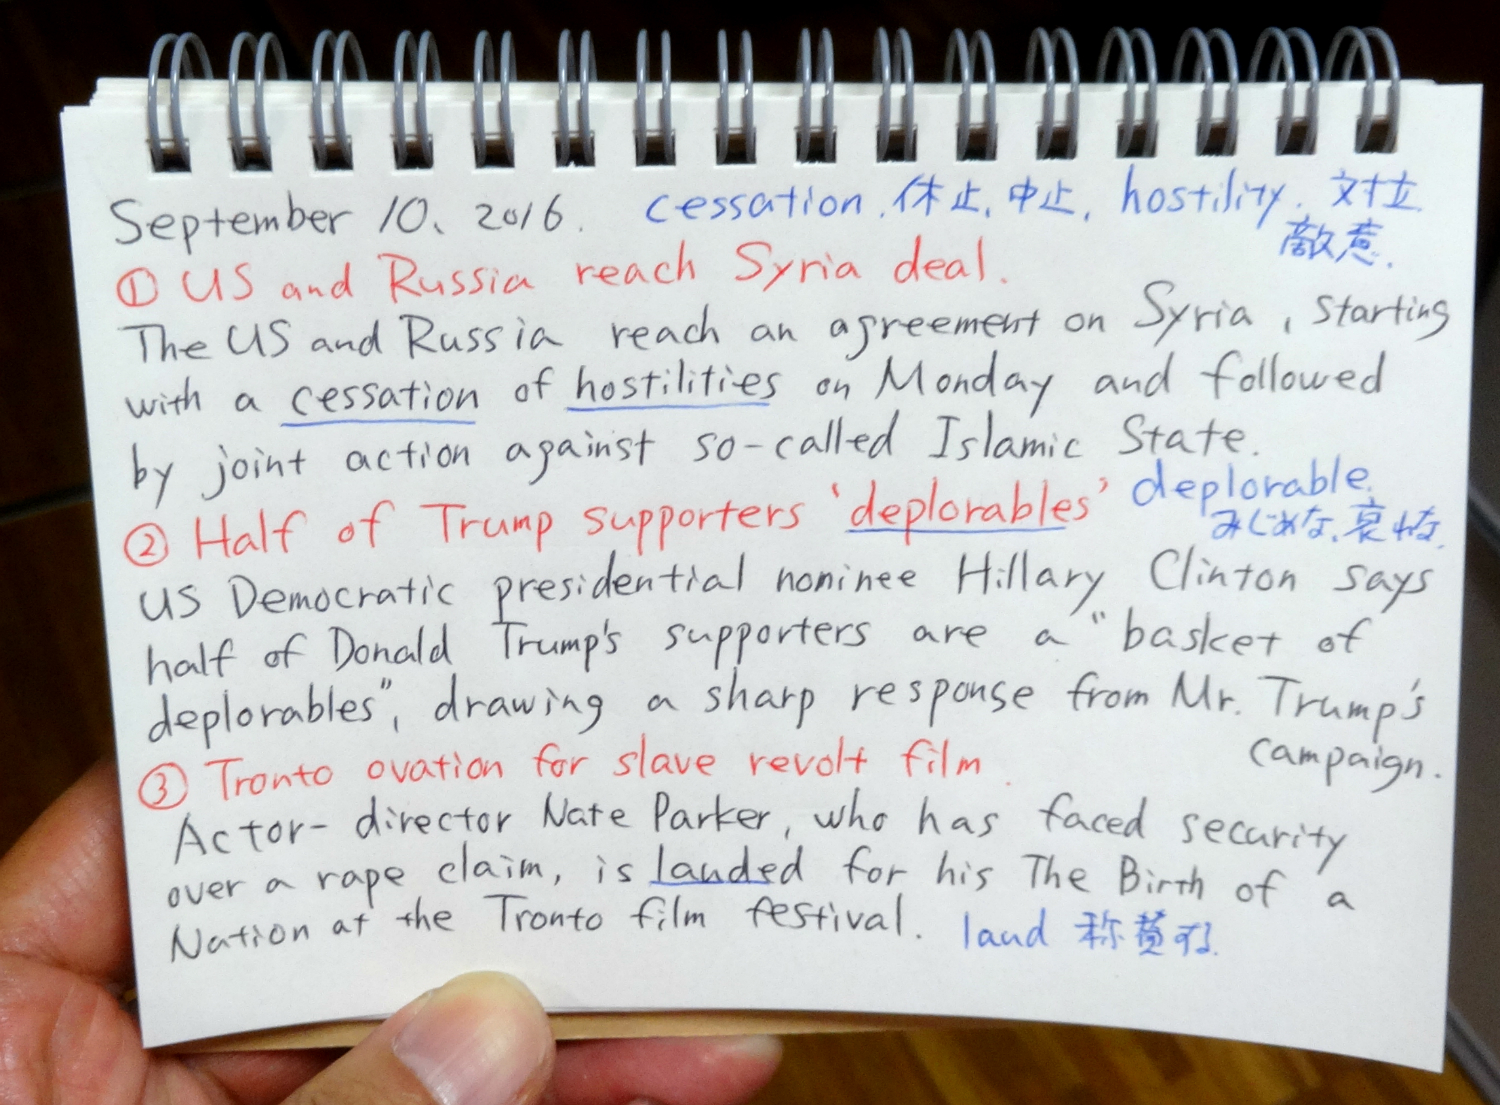 September 10、2016.  cessation. 休止、中止、hostility. 対立
敵意.
① US and Russia reach Syria deal.
The US and Russia reach an agreement on Syria, starting
with a cessation of hostilities on Monday and followed
by joint action against so-called Islamic State.
② Half of Trump supporters 'deplorables' deplorable.
みじめな、哀れな.
US Democratic presidential nominee Hillary Clinton says
half of Donald Trump's supporters are a "basket of
deplorables", drawing a sharp response from Mr. Trump's
campaign.
③ Tronto ovation for slave revolt film.
Actor-director Nate Parker, who has faced security
over a rape claim, is lauded for his The Birth of a
Nation at the Tronto film festival. laud 称賛する.